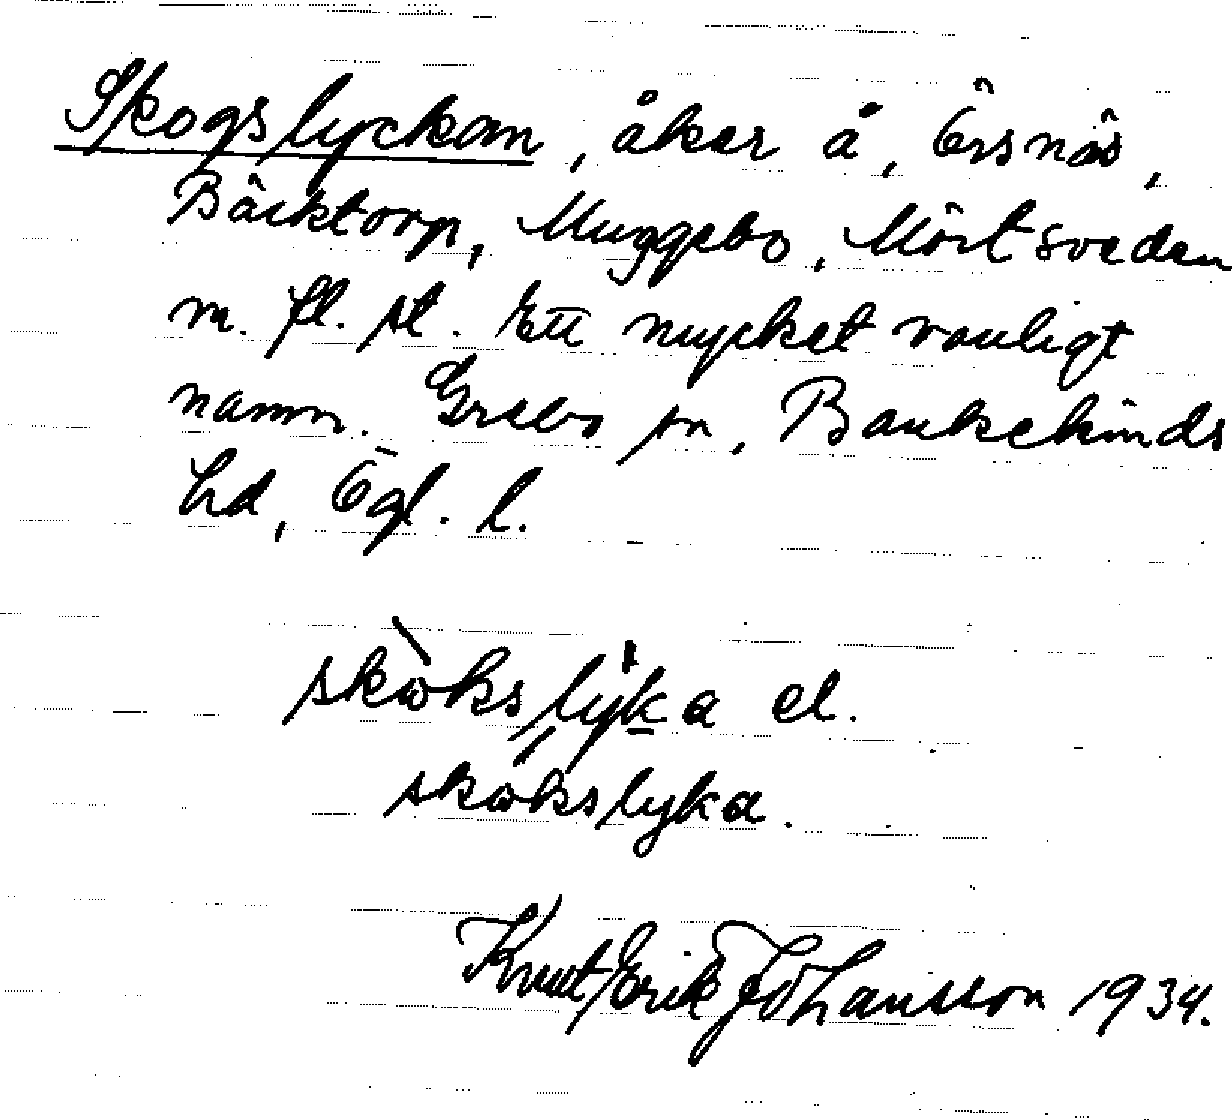 Skogslyckan, åker å, Örsnäs,
Bäcktorp, Muggebo, Mörtsveden
m. fl. st. Ett mycket vanligt
namn. Grebo sn, Bankekinds
hd, Ögl. l.
skòkslỳka el.
skòkslyka.
Knut/Erik Johansson 1934.